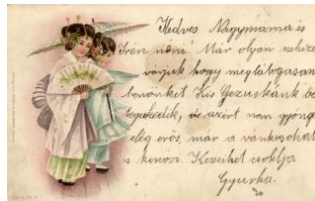 Kedves Nagymama és
Irén néni! Már olyan nehezen
várjuk hogy meglátogasson
bennünket. Kis Gézuskánk be
de azért nem gyönge
elég erős, már a vánkosokat
is kinövi. Kezeiket csókolja
Gyurka.